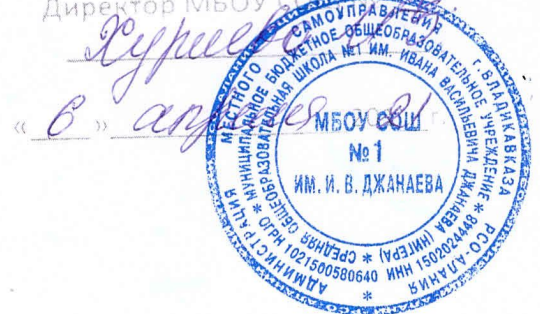 Директор МБОУ
« 6 » апреля 20 21 г.
АДМИНИСТРАЦИЯ МЕСТНОГО САМОУПРАВЛЕНИЯ г. ВЛАДИКАВКАЗА РСО-АЛАНИЯ *
МУНИЦИПАЛЬНОЕ БЮДЖЕТНОЕ ОБЩЕОБРАЗОВАТЕЛЬНОЕ УЧРЕЖДЕНИЕ *
СРЕДНЯЯ ОБЩЕОБРАЗОВАТЕЛЬНАЯ ШКОЛА №1 ИМ. ИВАНА ВАСИЛЬЕВИЧА ДЖАНАЕВА (НИГЕРА) *
ОГРН 1021500580640 ИНН 1502024448 *
МБОУ СОШ
№ 1
ИМ. И. В. ДЖАНАЕВА